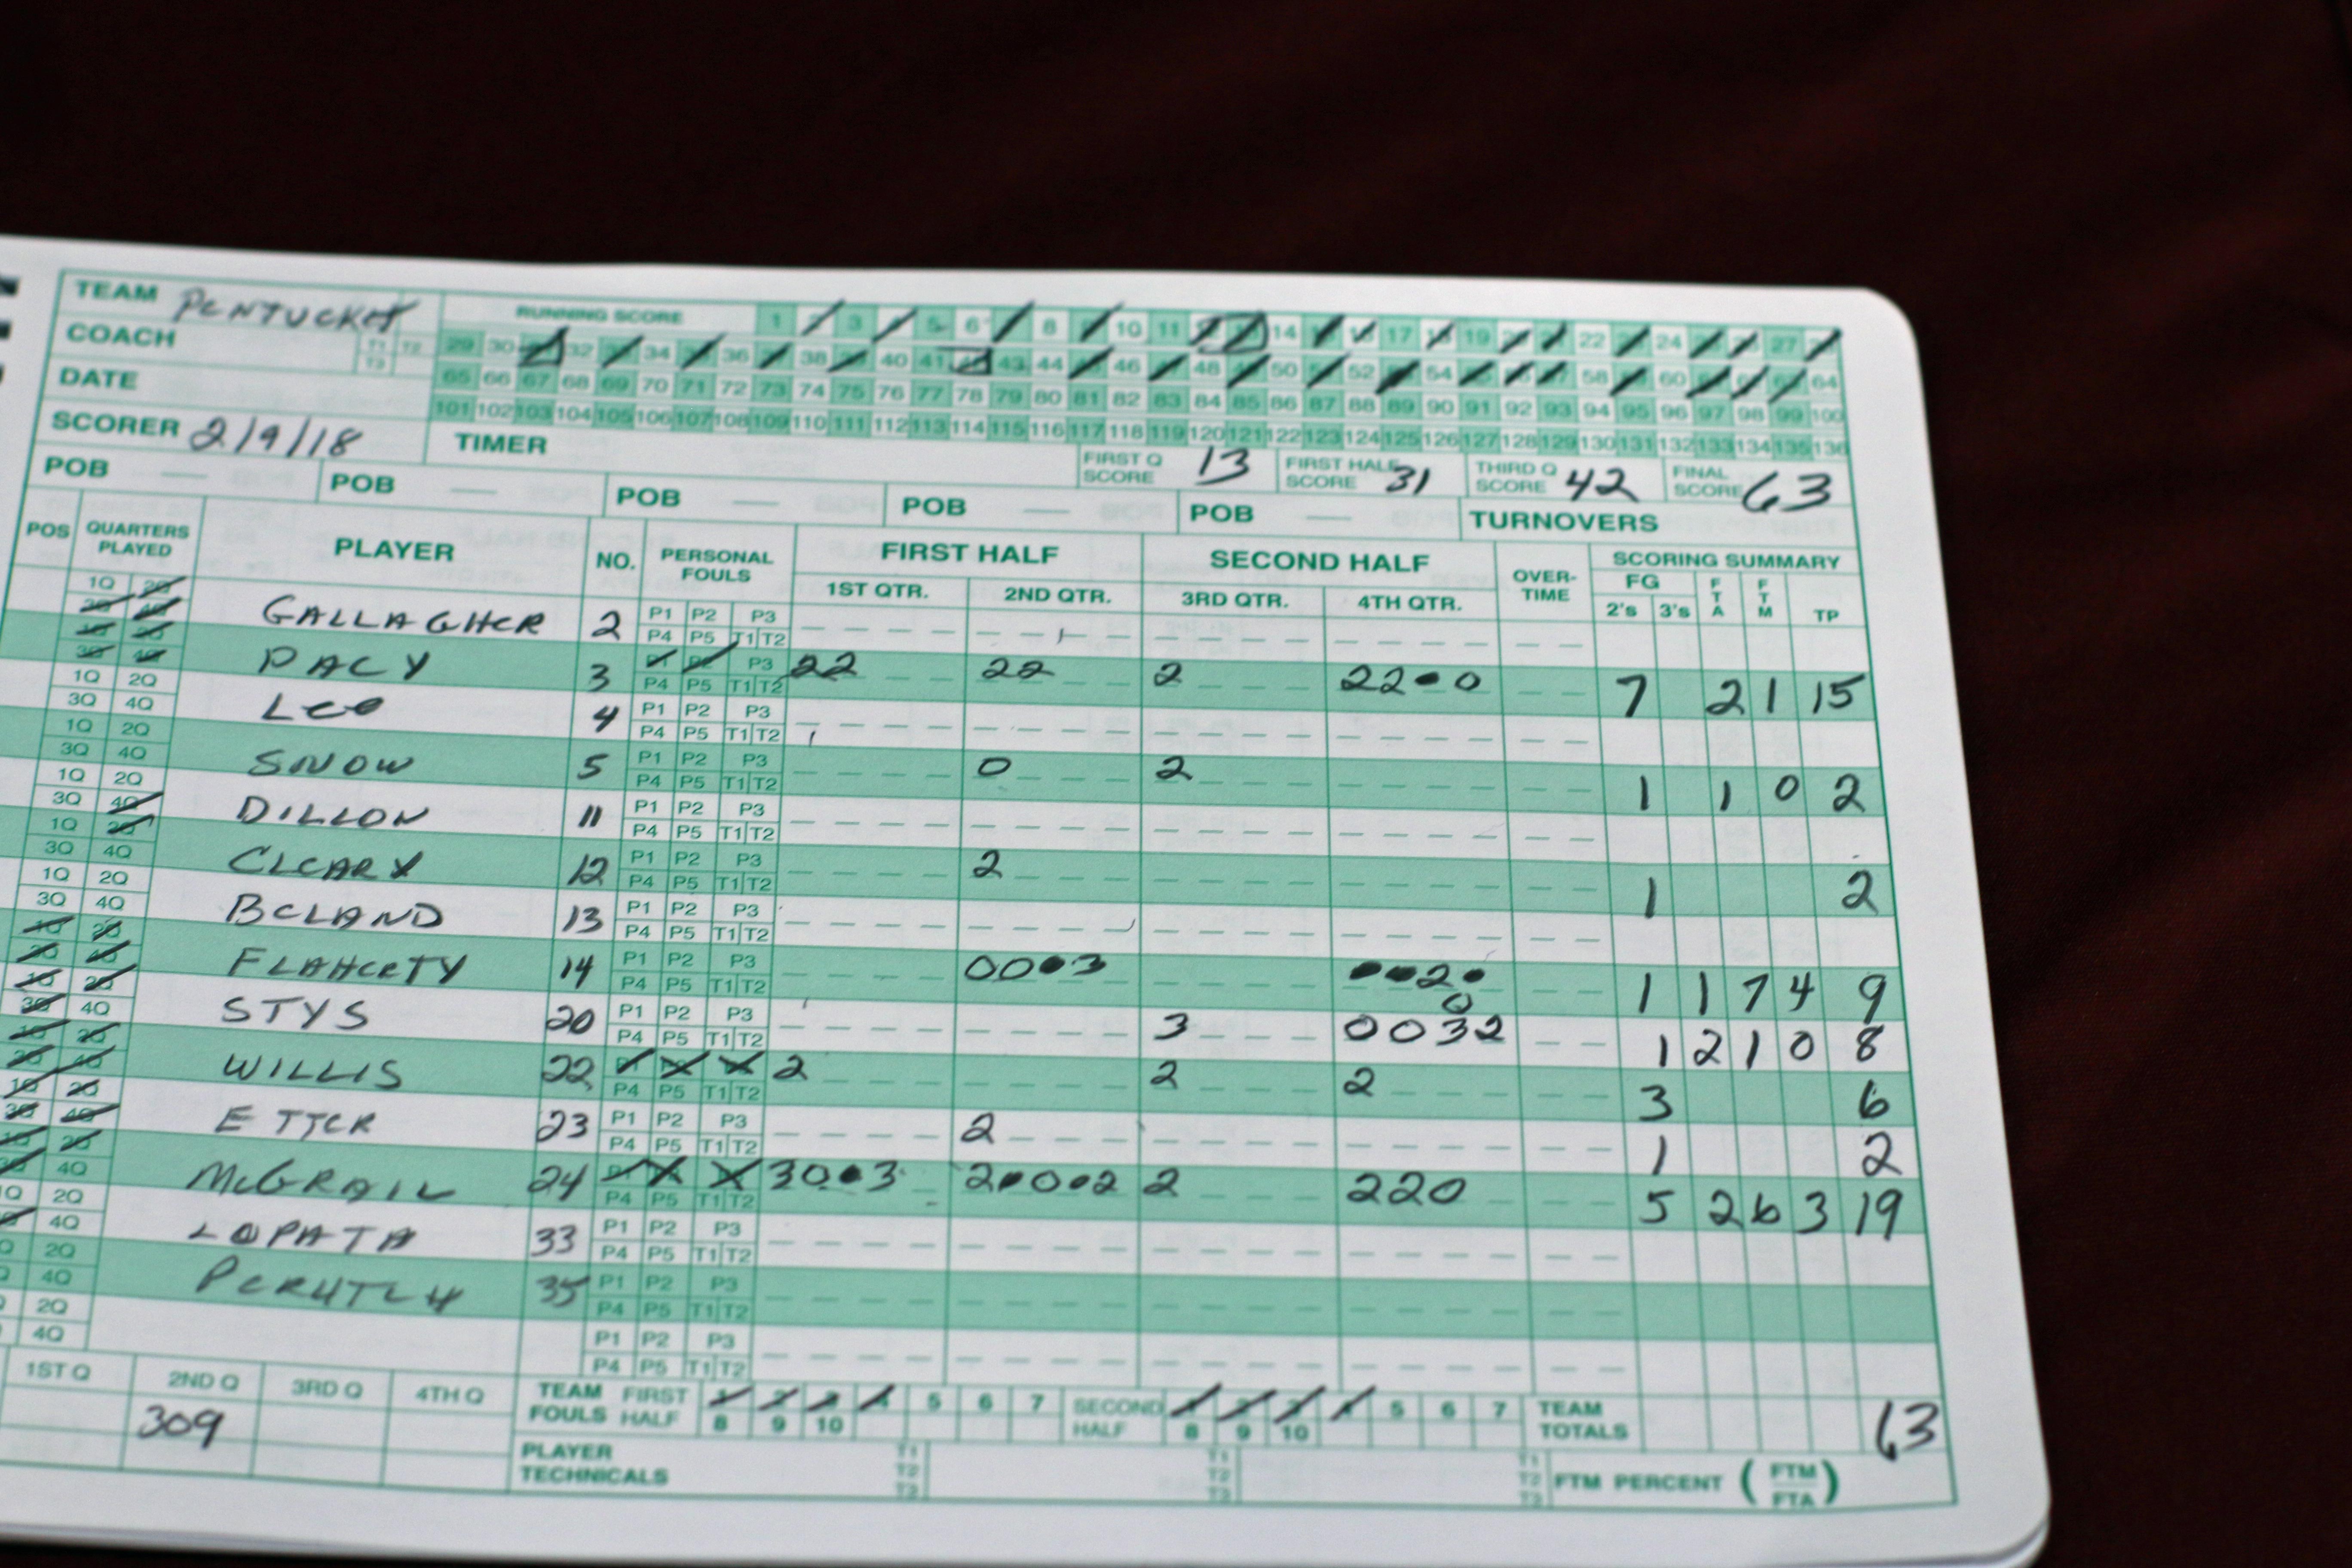 TEAM PENTUCKET RUNNING SCORE 1 2 3 4 5 6 7 8 9 10 11 12 13 14 15 16 17 18 19 20 21 22 23 24 25 26 27 28
COACH T1 T2 T3 29 30 31 32 33 34 35 36 37 38 39 40 41 42 43 44 45 46 47 48 49 50 51 52 53 54 55 56 57 58 59 60 61 62 63 64
DATE 65 66 67 68 69 70 71 72 73 74 75 76 77 78 79 80 81 82 83 84 85 86 87 88 89 90 91 92 93 94 95 96 97 98 99 100
101 102 103 104 105 106 107 108 109 110 111 112 113 114 115 116 117 118 119 120 121 122 123 124 125 126 127 128 129 130 131 132 133 134 135 136
SCORER 2/9/18 TIMER FIRST Q SCORE 13 FIRST HALF SCORE 31 THIRD Q SCORE 42 FINAL SCORE 63
POB POB POB POB POB TURNOVERS
POS QUARTERS PLAYED PLAYER NO. PERSONAL FOULS FIRST HALF SECOND HALF OVER-TIME SCORING SUMMARY
1ST QTR. 2ND QTR. 3RD QTR. 4TH QTR. FG 2's 3's FTA FTM TP
1Q 2Q GALLAGHER 2 P1 P2 P3
3Q 4Q P4 P5 T1 T2
1Q 2Q PACY 3 P1 P2 P3 22 22 2 22•0 7 2 1 15
3Q 4Q P4 P5 T1 T2
1Q 2Q LEE 4 P1 P2 P3
3Q 4Q P4 P5 T1 T2
1Q 2Q SNOW 5 P1 P2 P3 0 2 1 1 0 2
3Q 4Q P4 P5 T1 T2
1Q 2Q DILLON 11 P1 P2 P3
3Q 4Q P4 P5 T1 T2
1Q 2Q CLEARY 12 P1 P2 P3 2 1 2
3Q 4Q P4 P5 T1 T2
1Q 2Q BELAND 13 P1 P2 P3
3Q 4Q P4 P5 T1 T2
1Q 2Q FLAHERTY 14 P1 P2 P3 00•3 ••2•0 1 1 7 4 9
3Q 4Q P4 P5 T1 T2
1Q 2Q STYS 20 P1 P2 P3 3 0032 1 2 1 0 8
3Q 4Q P4 P5 T1 T2
1Q 2Q WILLIS 22 P1 P2 P3 2 2 2 3 6
3Q 4Q P4 P5 T1 T2
1Q 2Q ETTER 23 P1 P2 P3 2 1 2
3Q 4Q P4 P5 T1 T2
1Q 2Q McGRAIL 24 P1 P2 P3 30•3 2•0•2 2 220 5 2 6 3 19
3Q 4Q P4 P5 T1 T2
1Q 2Q LOPATA 33 P1 P2 P3
3Q 4Q P4 P5 T1 T2
2Q 35 P1 P2 P3
4Q P4 P5 T1 T2
2Q P1 P2 P3
4Q P4 P5 T1 T2
1ST Q 2ND Q 3RD Q 4TH Q TEAM FOULS FIRST HALF 1 2 3 4 5 6 7 8 9 10 SECOND HALF 1 2 3 4 5 6 7 8 9 10 TEAM TOTALS 63
309 PLAYER TECHNICALS T1 T2 T3 T1 T2 T3 T1 T2 T3 FTM PERCENT (FTM/FTA)